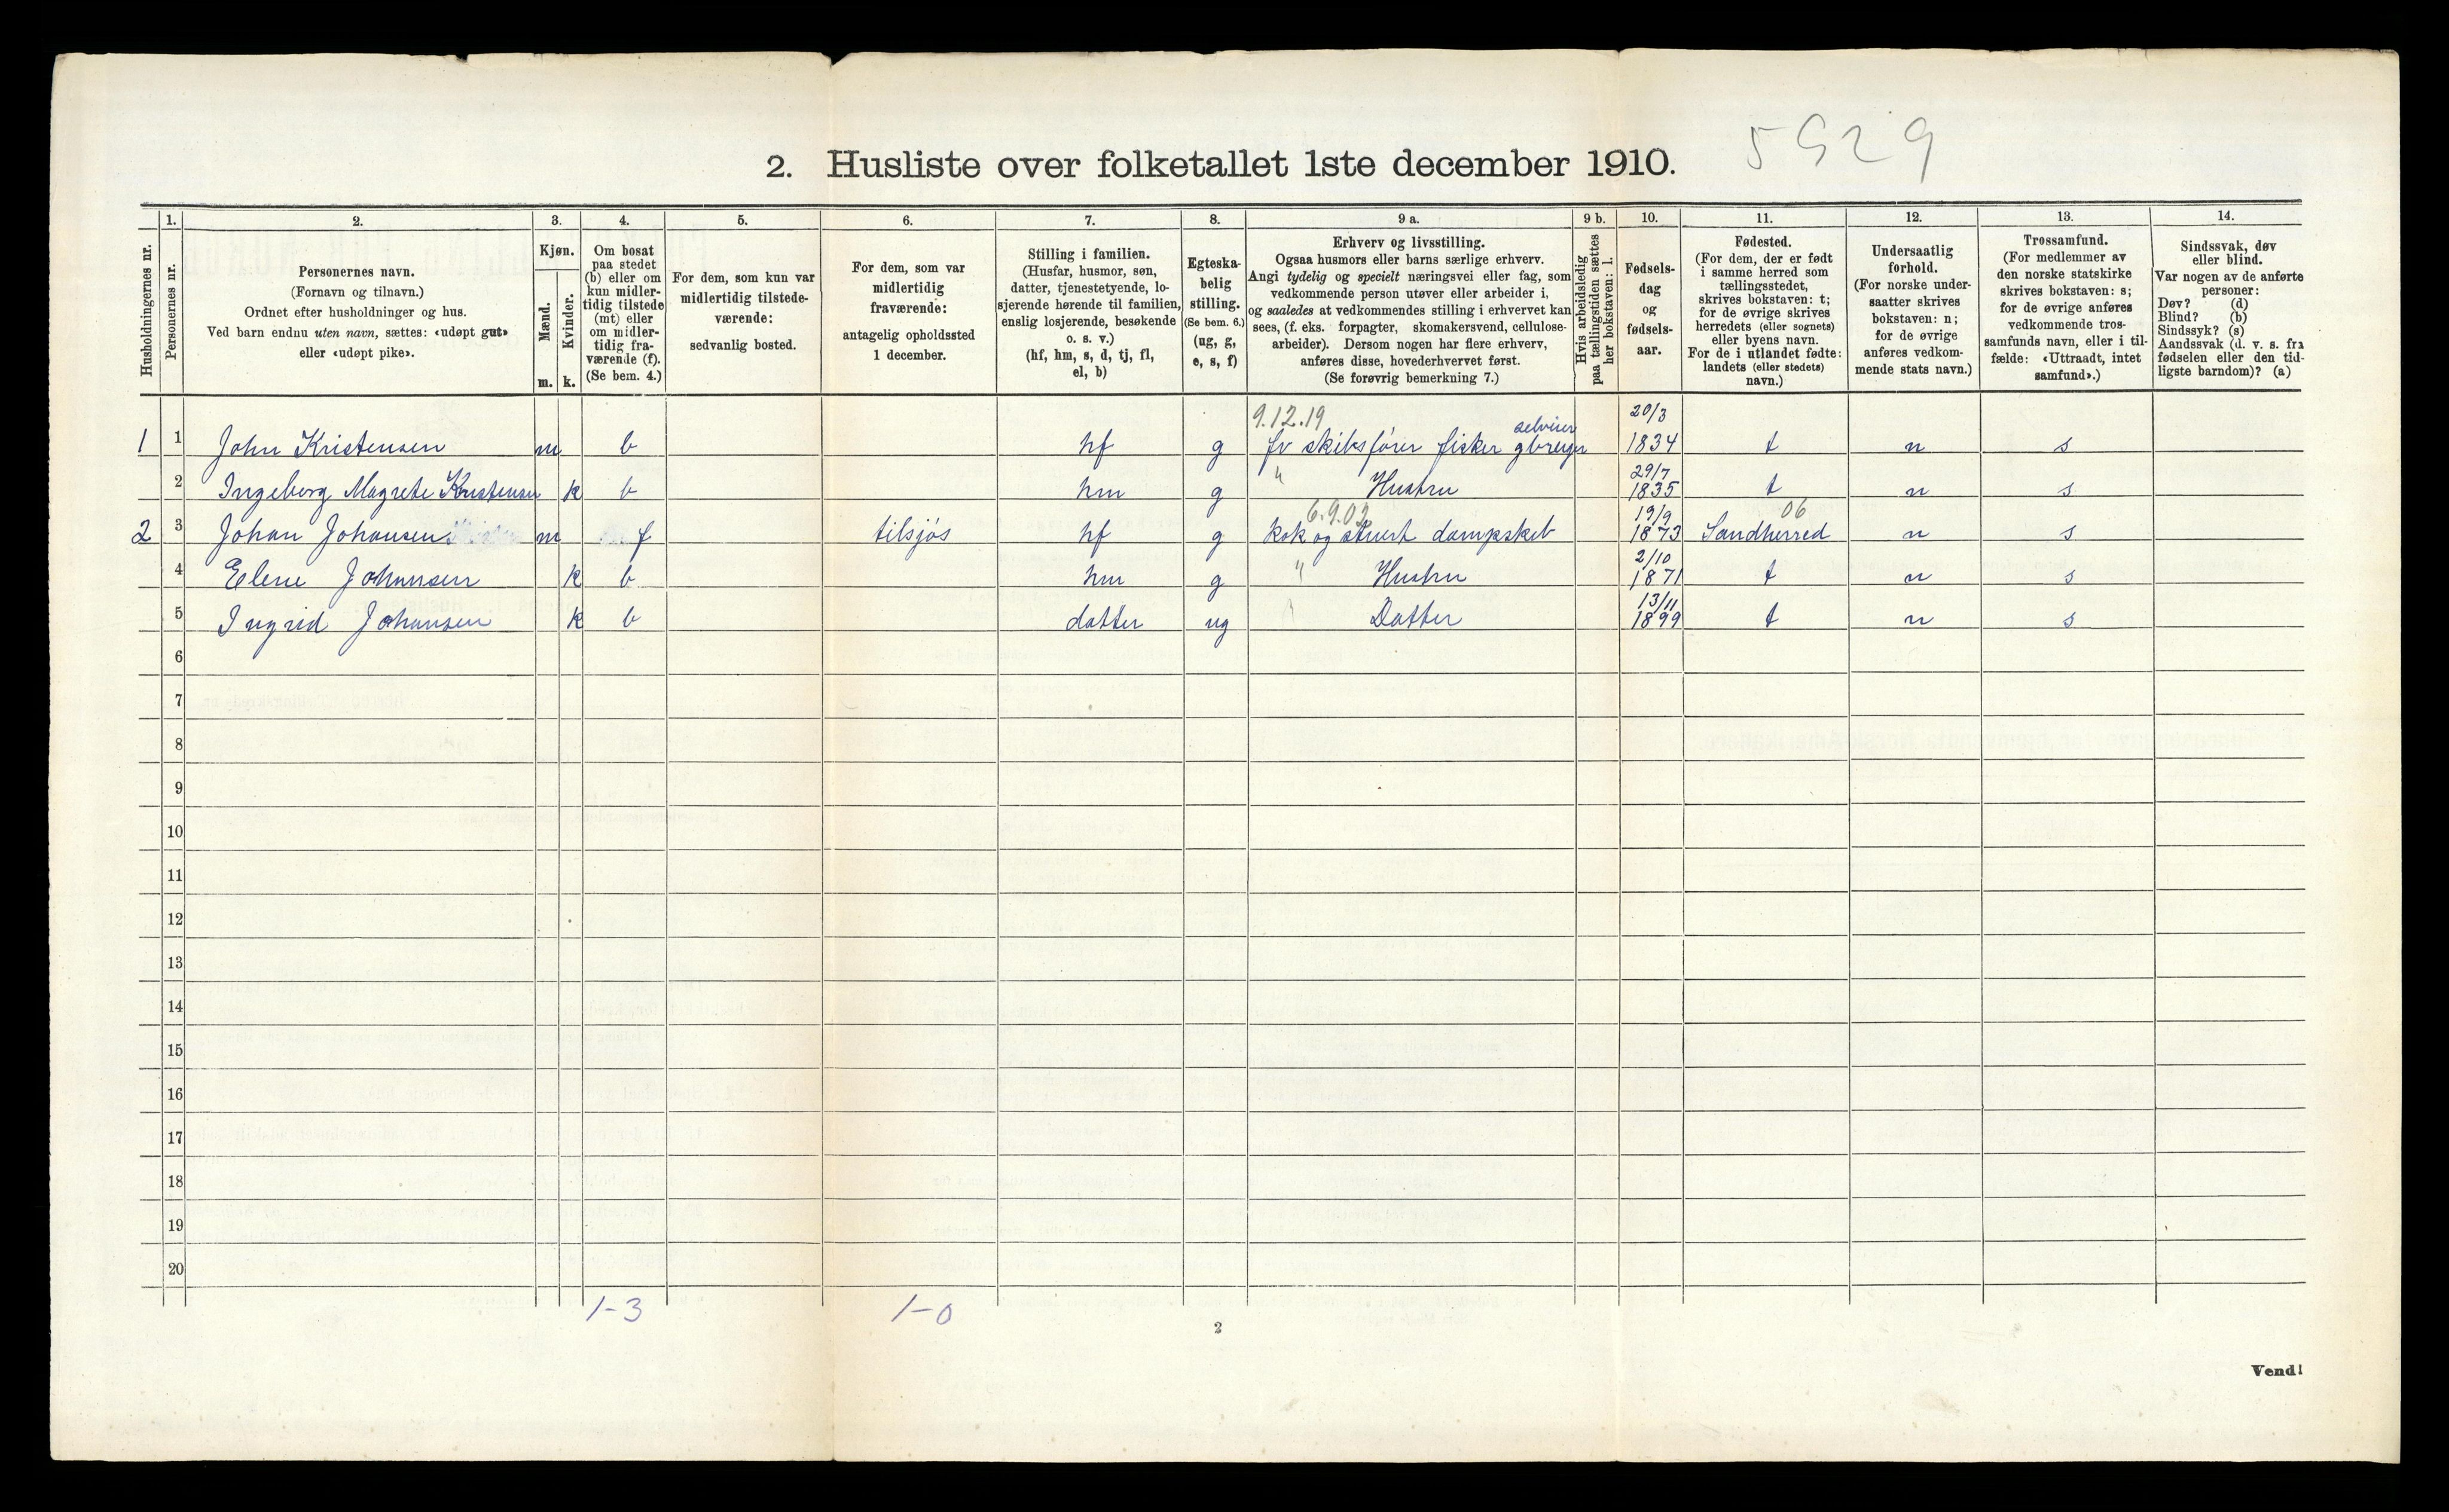 5929
2. Husliste over folketallet 1ste december 1910.
Husholdningernes nr.
1.
Personernes nr.
2.
Personernes navn.
(Fornavn og tilnavn.)
Ordnet efter husholdninger og hus.
Ved barn endnu uten navn, sættes: «udøpt gut»
eller «udøpt pike».
3.
Kjøn.
Mænd.
Kvinder.
m. k.
4.
Om bosat
paa stedet
(b) eller om
kun midler-
tidig tilstede
(mt) eller
om midler-
tidig fra-
værende (f).
(Se bem. 4.)
5.
For dem, som kun var
midlertidig tilstede-
værende:
sedvanlig bosted.
6.
For dem, som var
midlertidig
fraværende:
antagelig opholdssted
1 december.
7.
Stilling i familien.
(Husfar, husmor, søn,
datter, tjenestetyende, lo-
sjerende hørende til familien,
enslig losjerende, besøkende
o. s. v.)
(hf, hm, s, d, tj, fl,
el, b)
8.
Egteska-
belig
stilling.
(Se bem. 6.)
(ug, g,
e, s, f)
9 a.
Erhverv og livsstilling.
Ogsaa husmors eller barns særlige erhverv.
Angi tydelig og specielt næringsvei eller fag, som
vedkommende person utøver eller arbeider i,
og saaledes at vedkommendes stilling i erhvervet kan
sees, (f. eks. forpagter, skomakersvend, cellulose-
arbeider). Dersom nogen har flere erhverv,
anføres disse, hovederhvervet først.
(Se forøvrig bemerkning 7.)
9 b.
Hvis arbeidsledig
paa tællingstiden sættes
her bokstaven: l.
10.
Fødsels-
dag
og
fødsels-
aar.
11.
Fødested.
(For dem, der er født
i samme herred som
tællingsstedet,
skrives bokstaven: t;
for de øvrige skrives
herredets (eller sognets)
eller byens navn.
For de i utlandet fødte:
landets (eller stedets)
navn.)
12.
Undersaatlig
forhold.
(For norske under-
saatter skrives
bokstaven: n;
for de øvrige
anføres vedkom-
mende stats navn.)
13.
Trossamfund.
(For medlemmer av
den norske statskirke
skrives bokstaven: s;
for de øvrige anføres
vedkommende tros-
samfunds navn, eller i til-
fælde: «Uttraadt, intet
samfund».)
14.
Sindssvak, døv
eller blind.
Var nogen av de anførte
personer:
Døv? (d)
Blind? (b)
Sindssyk? (s)
Aandssvak (d. v. s. fra
fødselen eller den tid-
ligste barndom)? (a)
9.12.19 selveier 20/3
1 1 John Kristensen m b hf g fv skibsfører fisker gbruger 1834 t n s
29/7
2 Ingeborg Magrete Kristensen k b hm g " Hustru 1835 t n s
6.9.02 19/9 06
2 3 Johan Johansen m f tilsjøs hf g kok og stuert dampskib 1873 Sandherred n s
2/10
4 Elene Johansen k b hm g " Hustru 1871 t n s
13/11
5 Ingrid Johansen k b datter ug " Datter 1899 t n s
6
7
8
9
10
11
12
13
14
15
16
17
18
19
20
1-3 1-0
2
Vend!